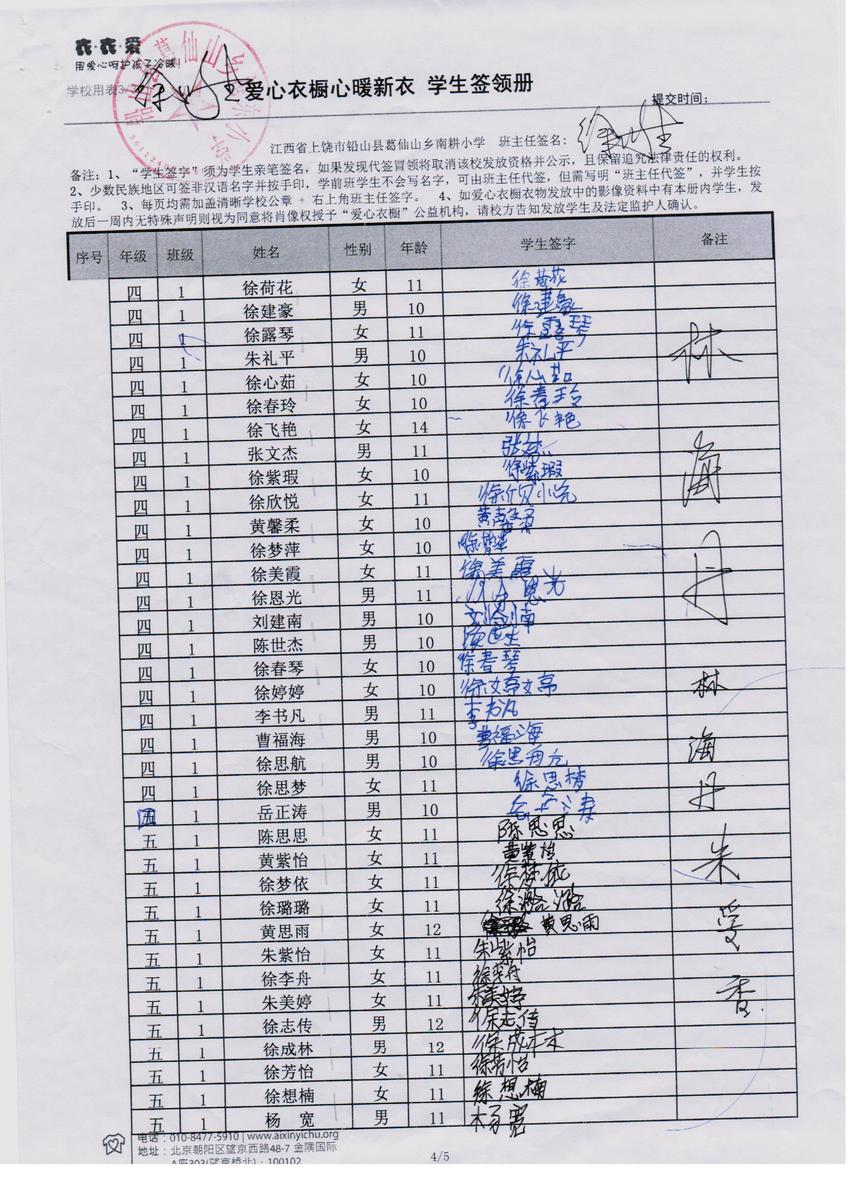 衣·衣·爱
用爱心呵护孩子冷暖!
学校用表3
爱心衣橱心暖新衣 学生签领册
提交时间:
江西省上饶市铅山县葛仙山乡南耕小学 班主任签名:
备注:1、“学生签字”须为学生亲笔签名,如果发现代签冒领将取消该校发放资格并公示,且保留追究法律责任的权利。
2、少数民族地区可签非汉语名字并按手印,学前班学生不会写名字,可由班主任代签,但需写明“班主任代签”,并学生按
手印。 3、每页均需加盖清晰学校公章 + 右上角班主任签字。 4、如爱心衣橱衣物发放中的影像资料中有本册内学生,发
放后一周内无特殊声明则视为同意将肖像权授予“爱心衣橱”公益机构,请校方告知发放学生及法定监护人确认。
序号 年级 班级 姓名 性别 年龄 学生签字 备注
四 1 徐荷花 女 11 徐荷花
四 1 徐建豪 男 10 徐建豪
四 1 徐露琴 女 11 徐露琴
四 1 朱礼平 男 10 朱礼平 林
四 1 徐心茹 女 10 徐心茹
四 1 徐春玲 女 10 徐春玲
四 1 徐飞艳 女 14 徐飞艳
四 1 张文杰 男 11
四 1 徐紫瑕 女 10 徐紫瑕 海
四 1 徐欣悦 女 11 徐欣悦
四 1 黄馨柔 女 10
四 1 徐梦萍 女 10
四 1 徐美霞 女 11 徐美霞 丹
四 1 徐恩光 男 11 徐恩光
四 1 刘建南 男 10 刘建南
四 1 陈世杰 男 10
四 1 徐春琴 女 10 徐春琴
四 1 徐婷婷 女 10 林
四 1 李书凡 男 11 李书凡
四 1 曹福海 男 10 曹福海 海
四 1 徐思航 男 10 徐思航
四 1 徐思梦 女 11 徐思梦 丹
四 1 岳正涛 男 10 岳正涛
五 1 陈思思 女 11 陈思思
五 1 黄紫怡 女 11 黄紫怡 朱
五 1 徐梦依 女 11 徐梦依
五 1 徐璐璐 女 11 徐潞潞
五 1 黄思雨 女 12 黄思雨 爱
五 1 朱紫怡 女 11 朱紫怡
五 1 徐李舟 女 11 徐李舟
五 1 朱美婷 女 11 朱美婷 香
五 1 徐志传 男 12 徐志传
五 1 徐成林 男 12 徐成林
五 1 徐芳怡 女 11 徐芳怡
五 1 徐想楠 女 11 徐想楠
五 1 杨 宽 男 11 杨宽
电话:010-8477-5910 | www.aixinyichu.org
地址:北京朝阳区望京西路48-7 金隅国际
A座303(望京桥北)·100102
4/5